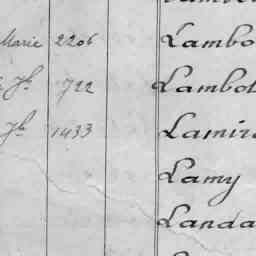 Marie 2206 Lambo
Jh 722 Lambot
Jh 1433 Lamir
Lamy
Landa